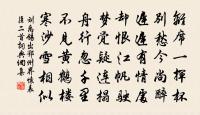 離席一揮杯
別愁今尚醉
遲遲有情處
却恨江帆駛
夢覺疑連榻
舟行忽千里
不見黃鶴樓
寒沙雪相似
劉禹錫出鄂州界懷表
臣二首詞典網集